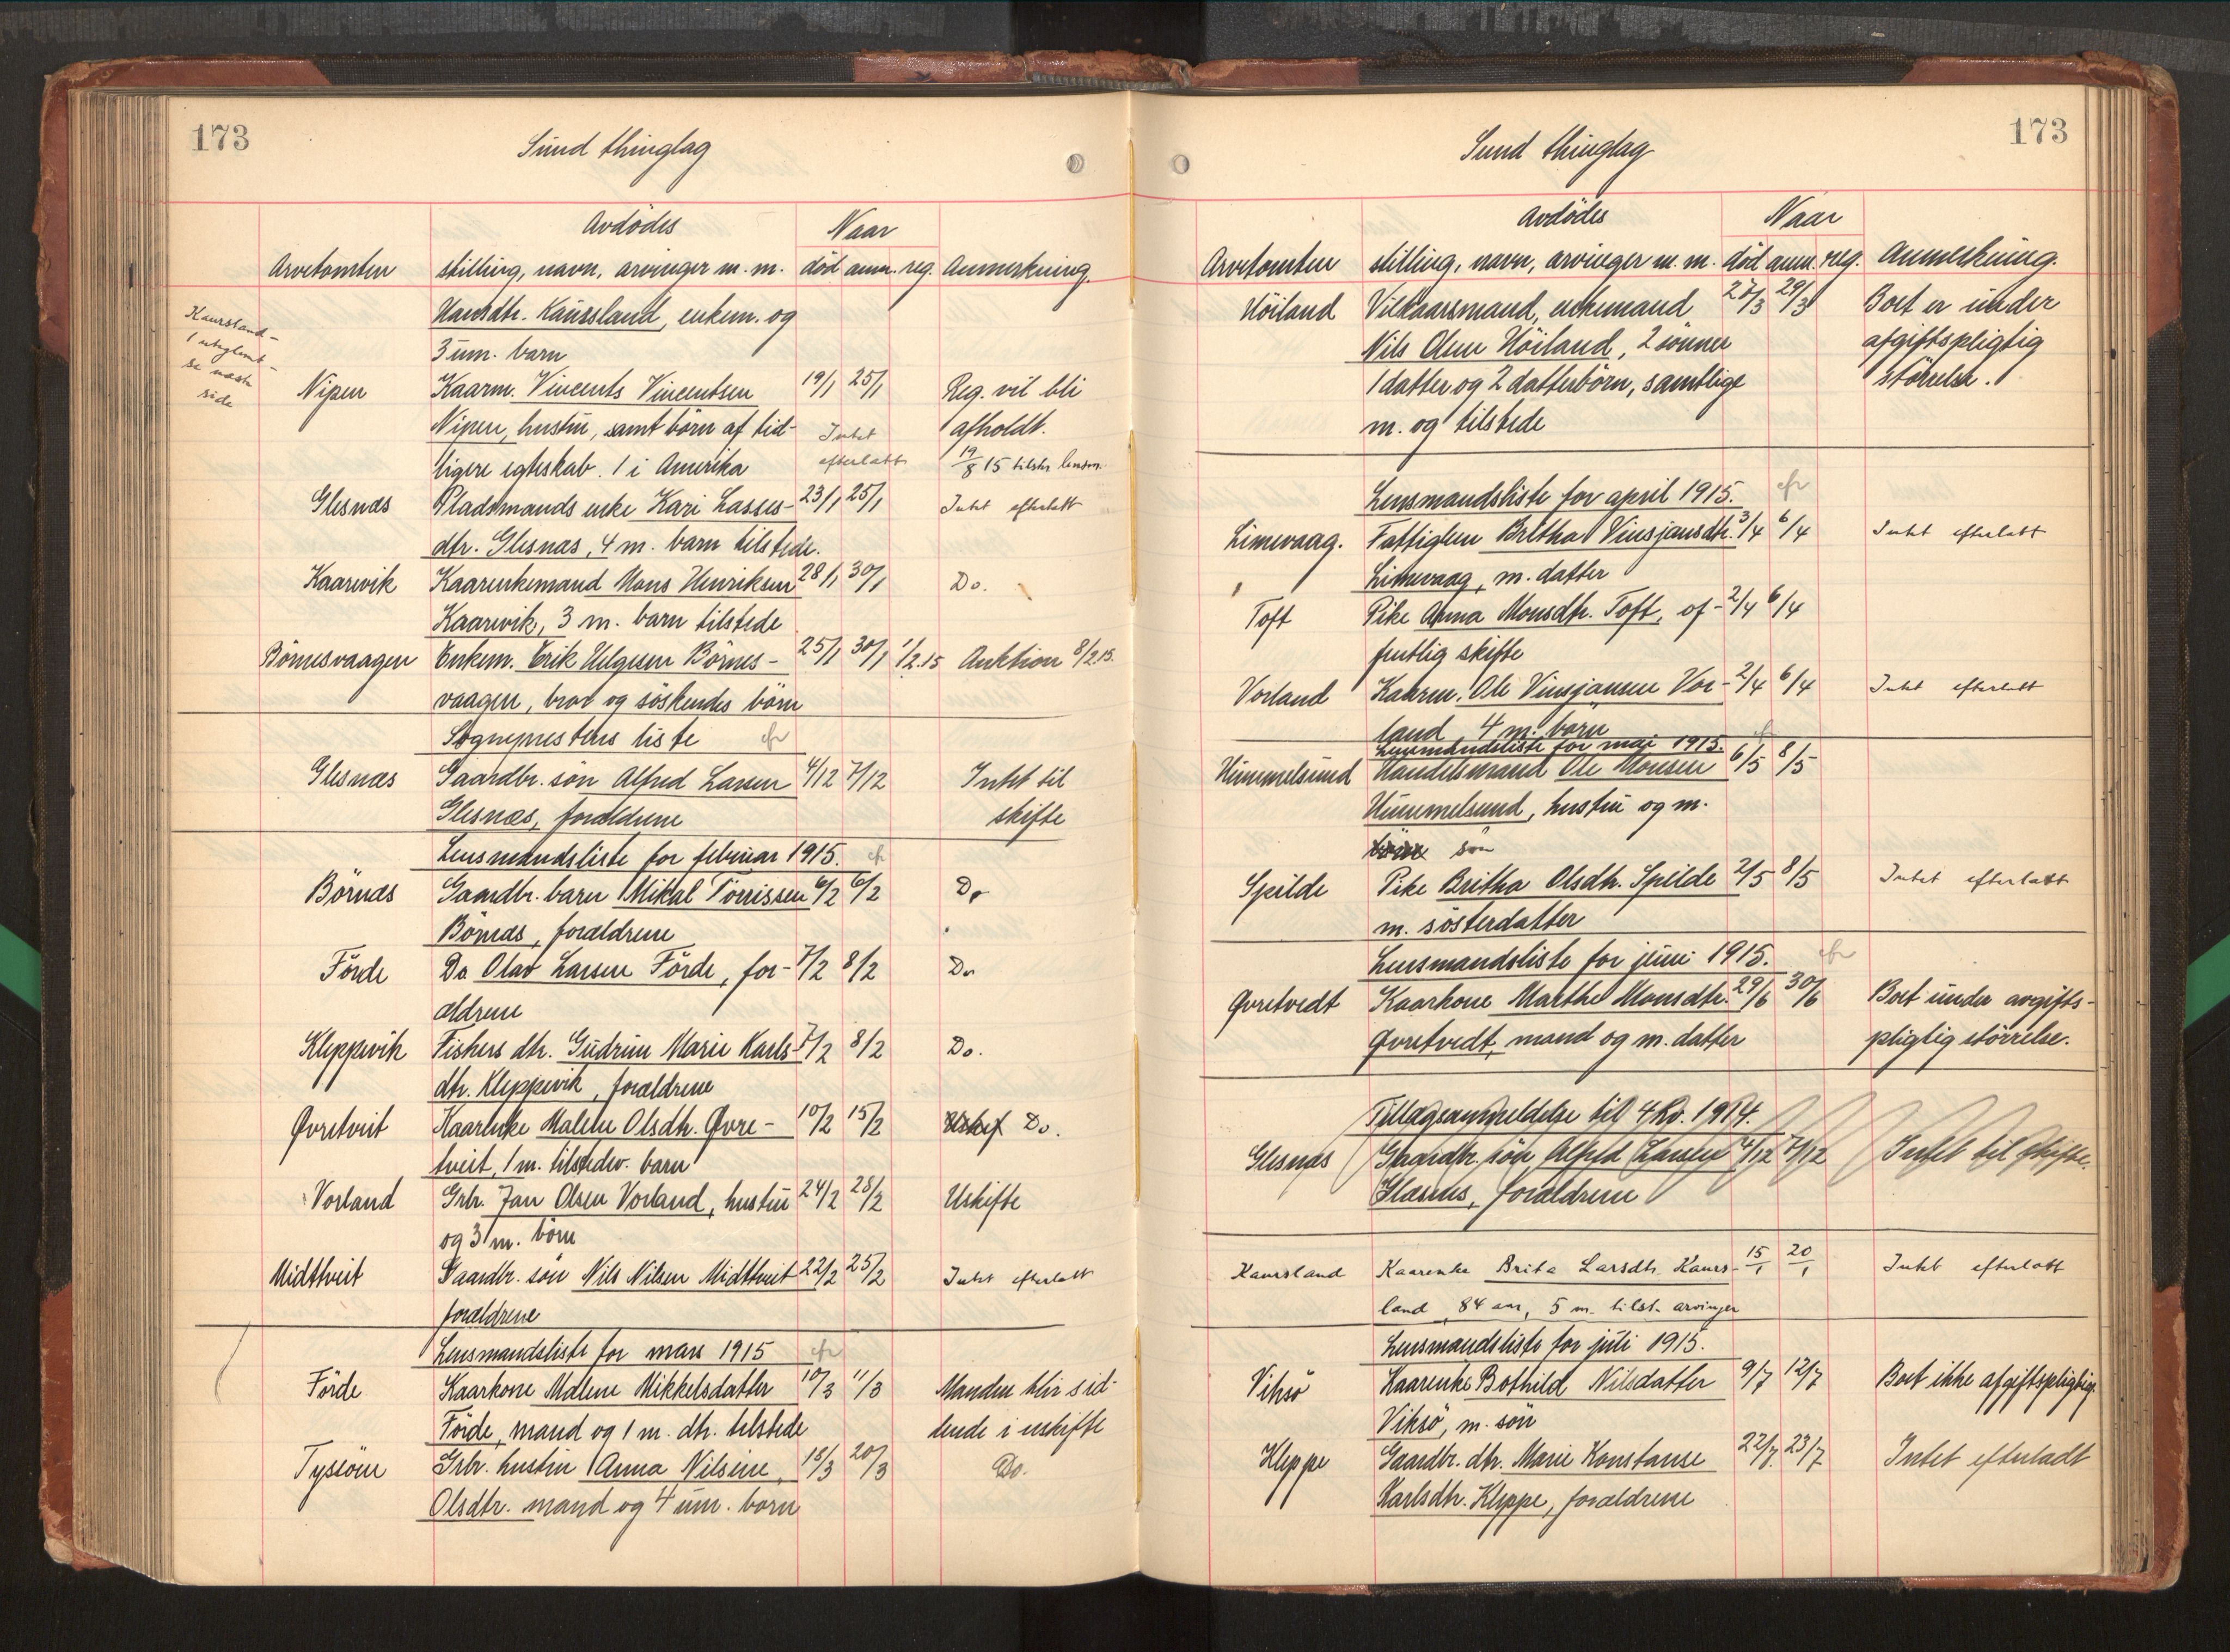 173
Sund thinglag
Avdödes
Naar
Arvetomten stilling, navn, arvinger m. m. död anm. reg. Anmerkning.
Kaursland-
1 uteglemt-
se næste
side
Hansdtr. Kaursland, enkem. og
3 um. barn
Nipen Kaarm. Vincents Vincentsen 19/1 25/1 Reg. vil bli
Nipen, hustru, samt börn af tid- Intet afholdt.
ligere egteskab. 1 i Amerika efterlatt 19/8 15 tilskr lensm.
Glesnæs Pladsmands enke Kari Lasses- 23/1 25/1 Intet efterlatt
dtr. Glesnæs, 4 m. barn tilstede.
Kaarevik Kaarenkemand Mons Henriksen 28/1 30/1 Do.
Kaarevik, 3 m. barn tilstede
Börnesvaagen Enkem. Erik Helgesen Börnes- 25/1 30/1 1/2.15 Auktion 8/2 15.
vaagen, bror og söskendes börn
Sogneprestens liste efr
Glesnæs Gaardbr. sön Alfred Larsen 4/12 7/12 Intet til
Glesnæs, forældrene skifte
Lensmandsliste for februar 1915. efr
Börnæs Gaardbr. barn Mikal Torrissen 6/2 6/2 Do
Börnæs, forældrene
Förde Do Olav Larsen Förde, for- 7/2 8/2 Do
ældrene
Kleppevik Fiskers dtr. Gudrun Marie Karls- 7/2 8/2 Do.
dtr. Kleppevik, forældrene
Øvretveit Kaarenke Malene Olsdtr. Øvre- 10/2 15/2 Uskif Do.
tveit, 1 m. tilstedev. barn
Vorland Grbr. Jan Olsen Vorland, hustru 24/2 28/2 Uskifte
og 3 m. börn
Midttveit Gaardbr. sön Nils Nilsen Midttveit 22/2 25/2 Intet efterlatt
forældrene
Lensmandsliste for mars 1915 efr
Förde Kaarkone Malene Mikkelsdatter 10/3 11/3 Manden blir sid-
Förde, mand og 1 m. dtr. tilstede dende i uskifte
Tysöen Grbr. hustru Anna Nilsine 18/3 20/3 Do.
Olsdtr. mand og 4 um. born
173
Sund thinglag
Avdödes
Naar
Arvetomten stilling, navn, arvinger m. m. död anm. reg. Anmerkning.
Höiland Vilkaarsmand, enkemand 27/3 29/3 Boet er under
Nils Olsen Höiland, 2 sönner afgiftspligtig
1 datter og 2 datterbörn, samtlige störrelse.
m. og tilstede
Lensmandsliste for april 1915. efr
Limevaag. Fattiglem Brltha Vinsjansdtr. 3/4 6/4 Intet efterlatt
Limevaag, m. datter
Toft Pike Anna Monsdtr. Toft, of- 2/4 6/4
fentlig skifte
Vorland Kaarm. Ole Vinsjansen Vor- 2/4 6/4 Intet efterlatt
land 4 m. börn
Lensmandsliste for mai 1915. efr
Hummelsund Handelsmand Ole Monsen 6/5 8/5
Hummelsund, hustru og m.
börn sön
Spilde Pike Britha Olsdtr. Spilde 2/5 8/5 Intet efterlatt
m. sösterdatter
Lensmandsliste for juni 1915. efr
Øvretvedt Kaarkone Marthe Monsdtr. 29/6 30/6 Boet under avgifts-
Øvretvedt, mand og m. datter pligtig störrelse.
Tillægsanmeldelse til 4 kv. 1914.
Glesnæs Gaardbr. sön Alfred Larsen 4/12 7/12 Intet til skifte.
Glæsnes, forældrene
Kaursland Kaarenke Brita Larsdtr. Kaurs- 15/1 20/1 Intet efterlatt
land, 84 aar, 5 m. tilst. arvinger
Lensmandsliste for juli 1915.
Viksö Kaarenke Bothild Nilsdatter 9/7 12/7 Boet ikke afgiftspligtig.
Viksö, m. sön
Kleppe Gaardbr. dtr. Marie Konstanse 22/7. 23/7 Intet efterladt
Karlsdtr. Kleppe, forældrene